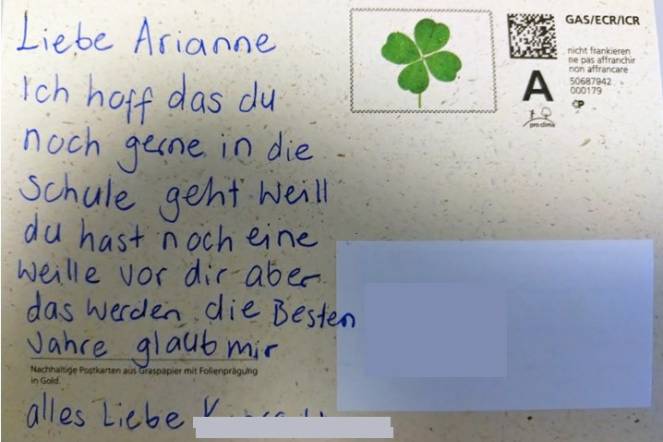 Liebe Arianne
Ich hoff das du
noch gerne in die
Schule geht weill
du hast noch eine
weille vor dir aber
das werden die Besten
Jahre glaub mir
Nachhaltige Postkarten aus Graspapier mit Folienprägung
in Gold.
alles Liebe
GAS/ECR/ICR
nicht frankieren
ne pas affranchir
non affrancare
50687942
000179
A
pro clima